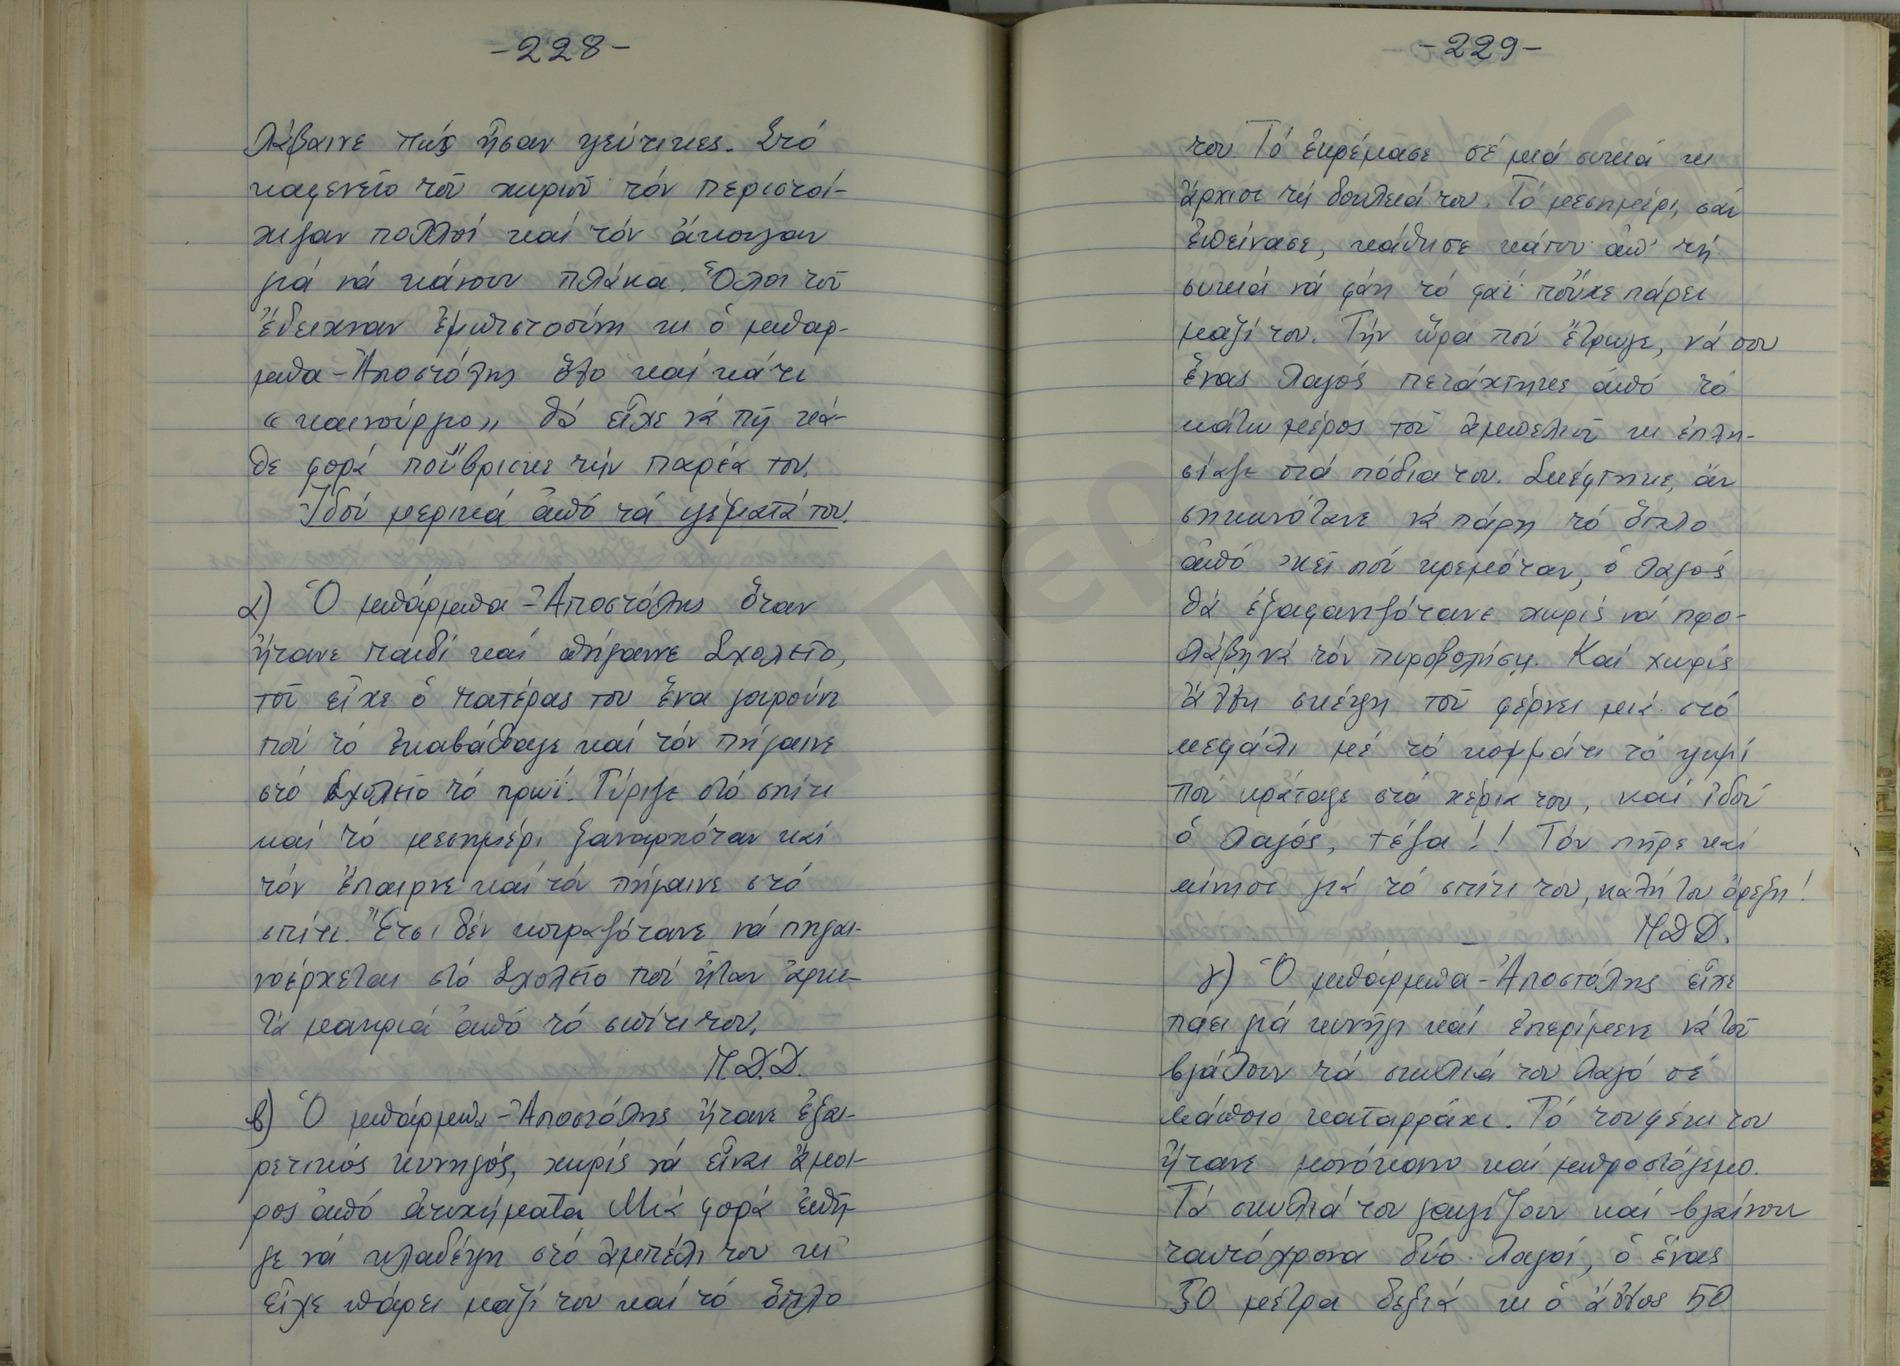 -228-
λάβαινε πώς ἦσαν ψεύτικες. Στό
καφενεῖο τοῦ χωριοῦ τόν περιστοί-
χιζαν πολλοί καί τόν ἄκουγαν
γιά νά κάνουν πλάκα. Ὅλοι τοῦ
ἔδειχναν ἐμπιστοσύνη κι ὁ μπαρ-
μπα-Ἀποστόλης ὅλο καί κάτι
«καινούργιο» θά εἶχε νά πῇ κά-
θε φορά ποὔβρισκε τήν παρέα του.
Ἰδού μερικά ἀπό τά ψέματά του.
α) Ὁ μπάρμπα-Ἀποστόλης ὅταν
ἤτανε παιδί καί πήγαινε Σχολεῖο,
τοῦ εἶχε ὁ πατέρας του ἕνα γουρούνι
πού τό ἐκαβάλαγε καί τόν πήγαινε
στό Σχολεῖο τό πρωί. Γύριζε στό σπίτι
καί τό μεσημέρι ξαναρχόταν καί
τόν ἔπαιρνε καί τόν πήγαινε στό
σπίτι. Ἔτσι δέν κουραζότανε νά πηγαι-
νοέρχεται στό Σχολεῖο πού ἦταν ἀρκε-
τά μακριά ἀπό τό σπίτι του.
Π.Δ.Δ.
β) Ὁ μπάρμπα-Ἀποστόλης ἤτανε ἐξαι-
ρετικός κυνηγός, χωρίς νά εἶναι ἄμοι-
ρος ἀπό ἀτυχήματα. Μιά φορά ἐπῆ-
γε νά κλαδέψῃ στό ἀμπέλι του κι
εἶχε πάρει μαζί του καί τό ὅπλο
-229-
του. Τό ἐκρέμασε σέ μιά συκιά κι
ἄρχισε τή δουλειά του. Τό μεσημέρι, σάν
ἐπείνασε, κάθησε κάτου ἀπ' τή
συκιά νά φάῃ τό φαΐ ποὖχε πάρει
μαζί του. Τήν ὥρα πού ἔτρωγε, νά σου
ἕνας λαγός πετάχτηκε ἀπό τό
κάτω μέρος τοῦ ἀμπελιοῦ κι ἐπλη-
σίαζε στά πόδια του. Σκέφτηκε, ἄν
σηκωνότανε νά πάρῃ τό ὅπλο
ἀπό 'κεῖ πού κρεμόταν, ὁ λαγός
θά ἐξαφανιζότανε χωρίς νά προ-
λάβῃ νά τόν πυροβολήσῃ. Καί χωρίς
ἄλλη σκέψη τοῦ φέρνει μιά στό
κεφάλι μέ τό κομμάτι τό ψωμί
πού κράταγε στά χέρια του, καί ἰδού
ὁ λαγός, τέζα!! Τόν πῆρε καί
κίνησε γιά τό σπίτι του, καλή του ὄρεξη!
Π.Δ.Δ.
γ) Ὁ μπάρμπα-Ἀποστόλης εἶχε
πάει γιά κυνῆγι καί ἐπερίμενε νά τοῦ
βγάλουν τά σκυλιά του λαγό σέ
κάποιο καταρράχι. Τό τουφέκι του
ἤτανε μονόκανο καί μπροστόγεμο.
Τά σκυλιά του γαυγίζουν καί βγαίνουν
ταυτόχρονα δύο λαγοί, ὁ ἕνας
50 μέτρα δεξιά κι ὁ ἄλλος 50